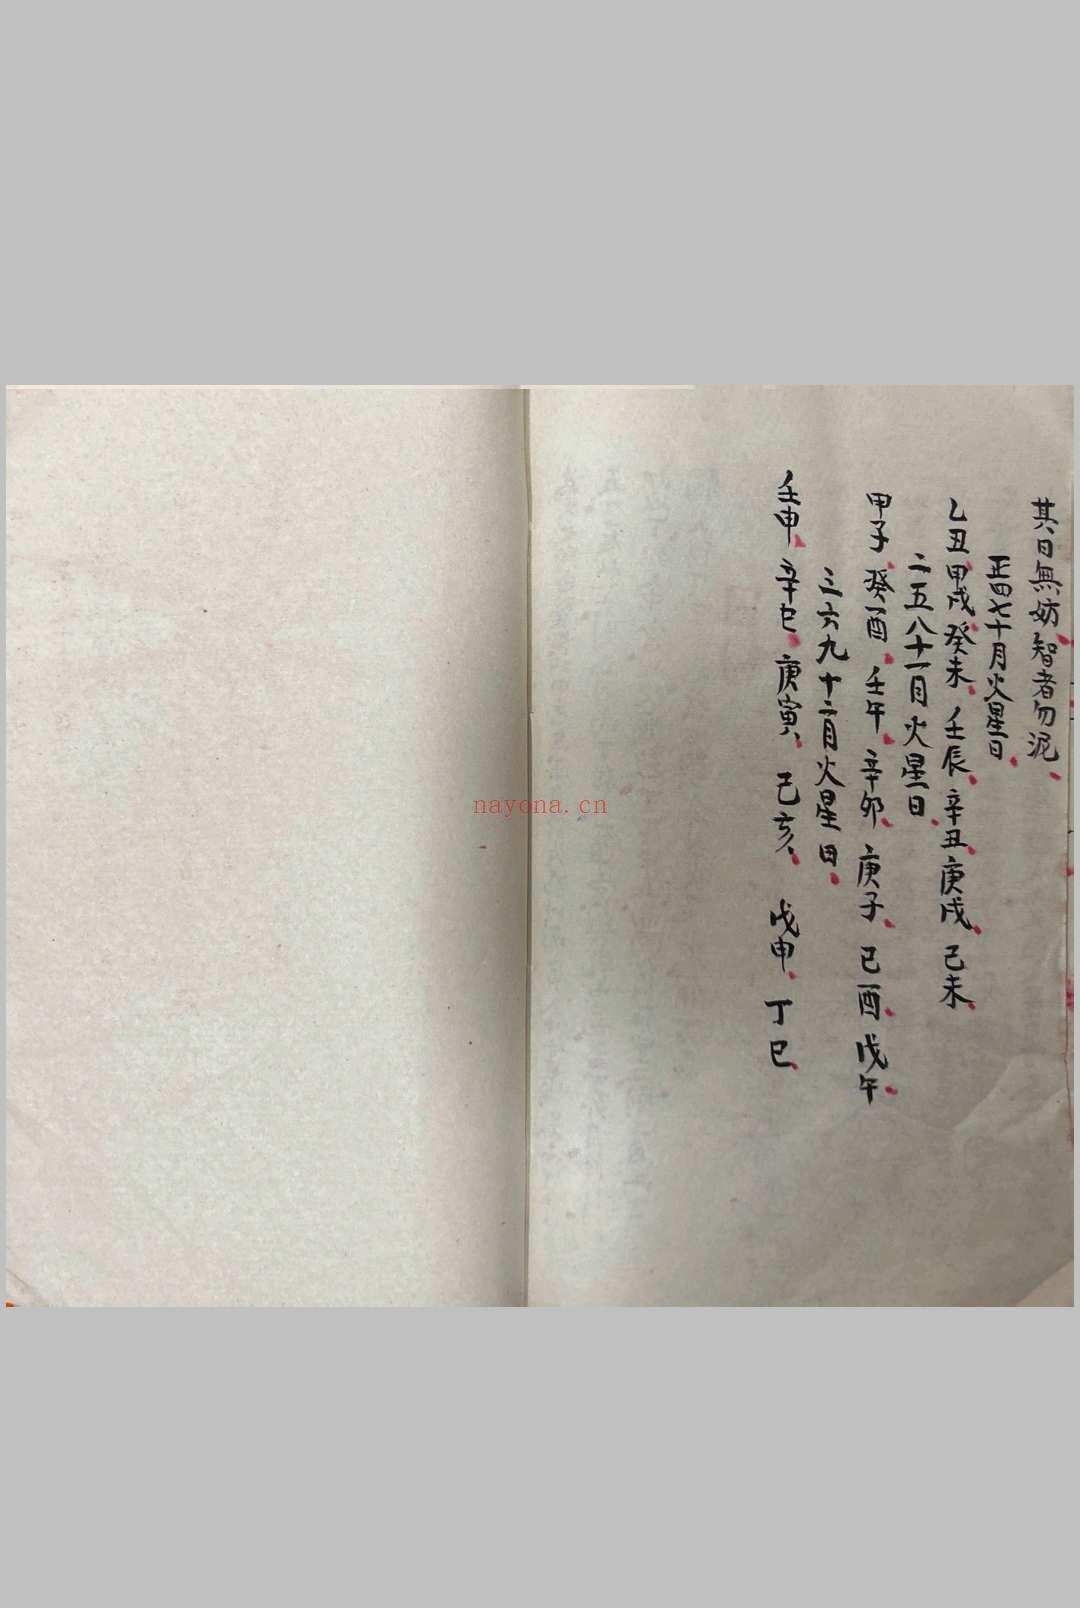 其日無妨智者勿泥
正四七十月火星日
乙丑甲戌癸未壬辰辛丑庚戌己未
二五八十一月火星日
甲子癸酉壬午辛卯庚子己酉戊午
三六九十二月火星日
壬申辛巳庚寅己亥戊申丁巳
nayona.cn